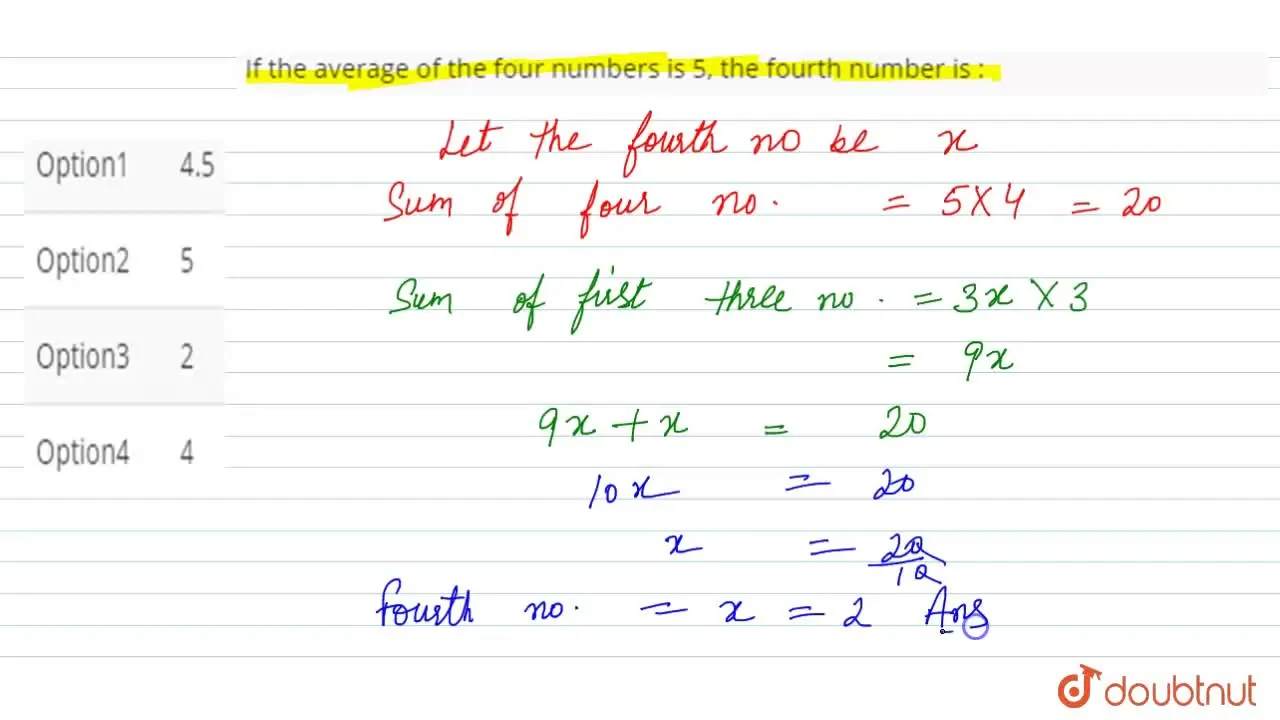 If the average of the four numbers is 5, the fourth number is :
Let the fourth no be x
Sum of four no. = 5 X 4 = 20
Sum of first three no. = 3x X 3
= 9x
9x + x = 20
10x = 20
x = 20/10
Fourth no. = x = 2 Ans
Option1 4.5
Option2 5
Option3 2
Option4 4
doubtnut